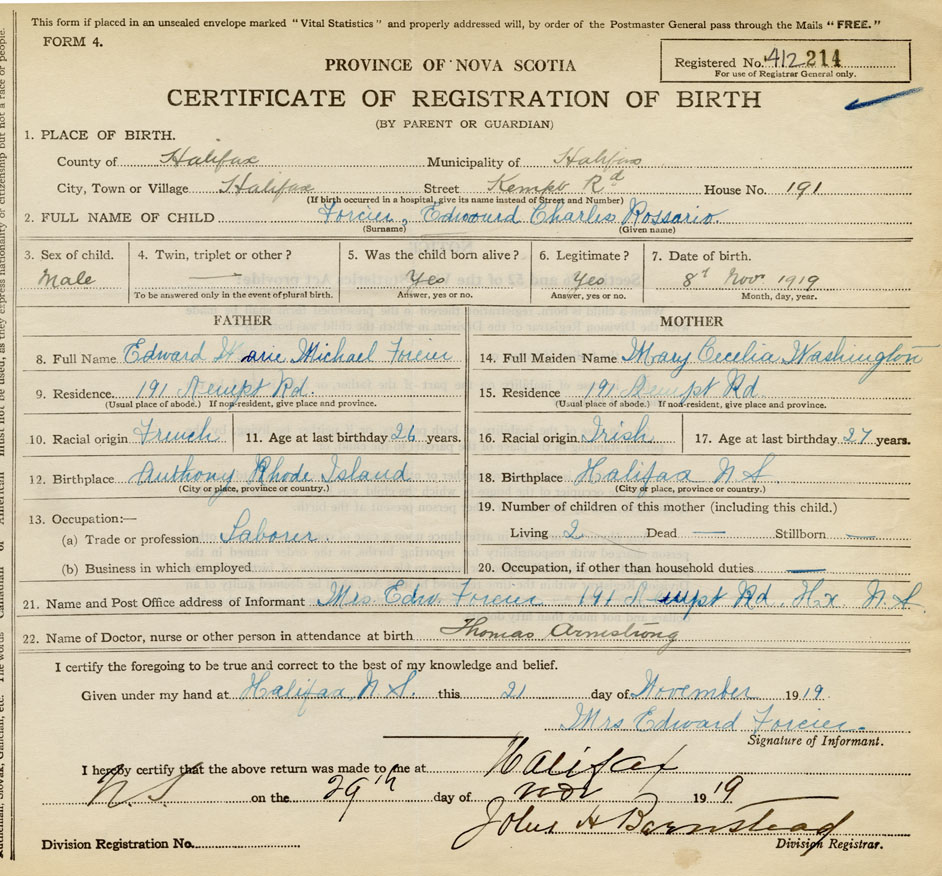 This form if placed in an unsealed envelope marked "Vital Statistics" and properly addressed will, by order of the Postmaster General pass through the Mails "FREE."
FORM 4.
Registered No. 412 214
For use of Registrar General only.
PROVINCE OF NOVA SCOTIA
CERTIFICATE OF REGISTRATION OF BIRTH
(BY PARENT OR GUARDIAN)
1. PLACE OF BIRTH.
County of Halifax Municipality of Halifax
City, Town or Village Halifax Street Kempt Rd House No. 191
(If birth occurred in a hospital, give its name instead of Street and Number)
2. FULL NAME OF CHILD Forcier, Edwoard Charles Rossario.
(Surname) (Given name)
3. Sex of child. 4. Twin, triplet or other? 5. Was the child born alive? 6. Legitimate? 7. Date of birth.
Male — Yes Yes 8t Nov 1919
To be answered only in the event of plural birth. Answer, yes or no. Answer, yes or no. Month, day, year.
FATHER MOTHER
8. Full Name Edward Michael Forcier 14. Full Maiden Name Mary Cecelia Washington
9. Residence 191 Kempt Rd. 15. Residence 191 Kempt Rd.
(Usual place of abode.) If non-resident, give place and province. (Usual place of abode.) If non-resident, give place and province.
10. Racial origin French 11. Age at last birthday 26 years. 16. Racial origin Irish 17. Age at last birthday 27 years.
12. Birthplace Anthony Rhode Island 18. Birthplace Halifax N S
(City or place, province or country.) (City or place, province or country.)
13. Occupation:— 19. Number of children of this mother (including this child.)
(a) Trade or profession Laborer Living 2 Dead — Stillborn —
(b) Business in which employed 20. Occupation, if other than household duties —
21. Name and Post Office address of Informant Mrs. Edw. Forcier 191 Kempt Rd. Hx N.S.
22. Name of Doctor, nurse or other person in attendance at birth Thomas Armstrong
I certify the foregoing to be true and correct to the best of my knowledge and belief.
Given under my hand at Halifax N.S. this 21 day of November 1919
Mrs Edward Forcier.
Signature of Informant.
I hereby certify that the above return was made to me at Halifax
N.S. on the 29th day of Nov 1919
John H Barnstead
Division Registration No. Division Registrar.